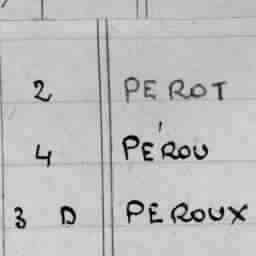 2 PEROT
4 PÉROU
3 D PEROUX